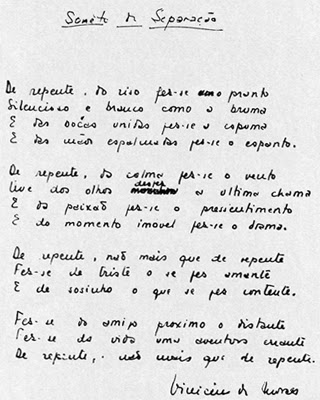 Soneto de Separação
De repente, do riso fez-se o pranto
Silencioso e branco como a bruma
E das bocas unidas fez-se a espuma
E das mãos espalmadas fez-se o espanto.
De repente, da calma fez-se o vento
Que dos olhos desfez a ultima chama
E da paixão fez-se o pressentimento
E do momento imovel fez-se o drama.
De repente, não mais que de repente
Fez-se de triste o que se fez amante
E de sosinho o que se fez contente.
Fez-se do amigo proximo o distante
Fez-se da vida uma aventura errante
De repente, não mais que de repente.
Vinicius de Moraes